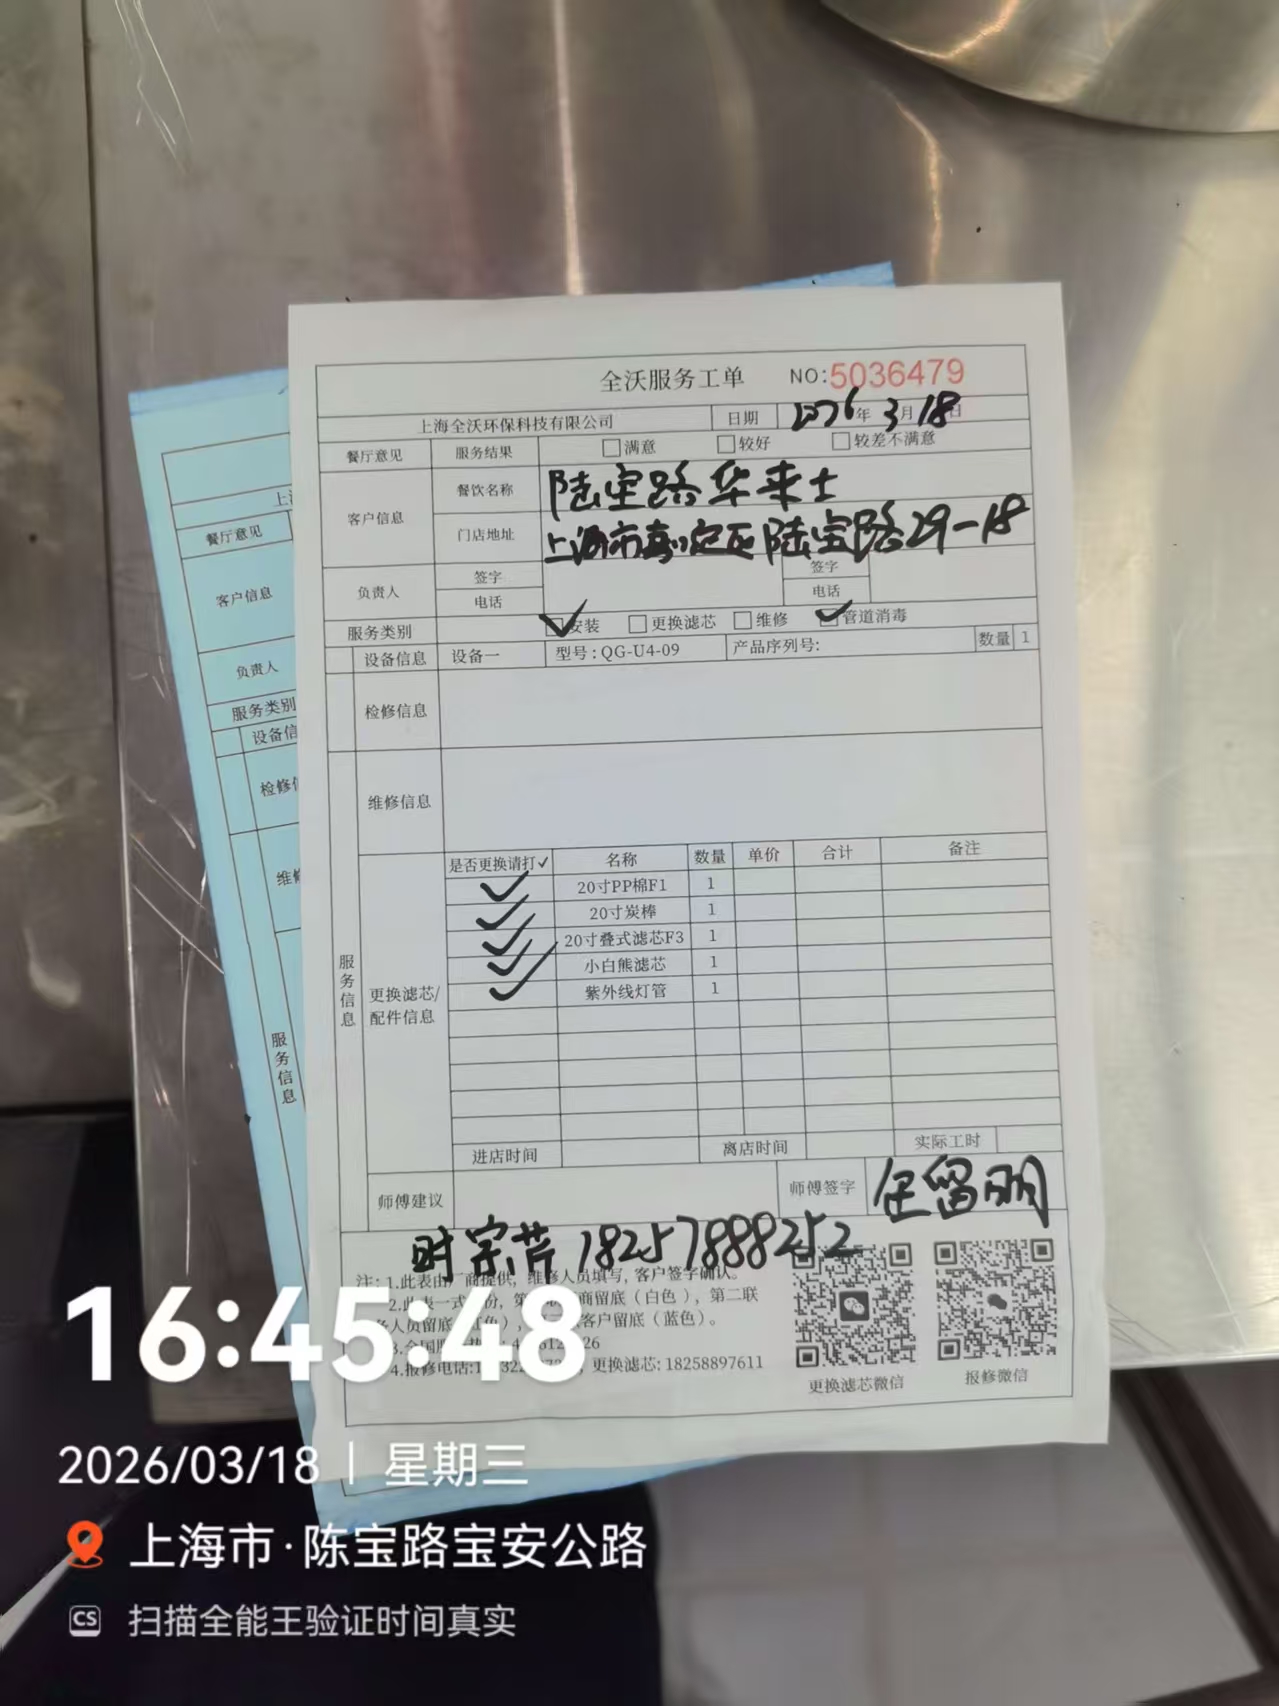 全沃服务工单 NO:5036479
上海全沃环保科技有限公司 日期 2026年3月18日
餐厅意见 服务结果 满意 较好 较差不满意
客户信息 餐饮名称 陆宝路华来士
门店地址 上海市嘉定区陆宝路29-18
负责人 签字 签字
电话 电话
服务类别 安装 更换滤芯 维修 管道消毒
设备信息 设备一 型号:QG-U4-09 产品序列号: 数量 1
检修信息
维修信息
服务信息
更换滤芯/配件信息
是否更换请打✓ 名称 数量 单价 合计 备注
✓ 20寸PP棉F1 1
✓ 20寸炭棒 1
✓ 20寸叠式滤芯F3 1
✓ 小白熊滤芯 1
✓ 紫外线灯管 1
进店时间 离店时间 实际工时
师傅建议 师傅签字 任留明
时宗芹 18257888252
注:1.此表由厂商提供,维修人员填写,客户签字确认。
2.此表一式 份,第 商留底(白色),第二联
务人员留底(红色), 客户留底(蓝色)。
3.全国服
4.报修电话:1 ,更换滤芯:18258897611
更换滤芯微信 报修微信
上海
餐厅意见
客户信息
负责人
服务类别
设备信
检修信
维修
服务信息
16:45:48
2026/03/18 | 星期三
上海市·陈宝路宝安公路
CS 扫描全能王验证时间真实